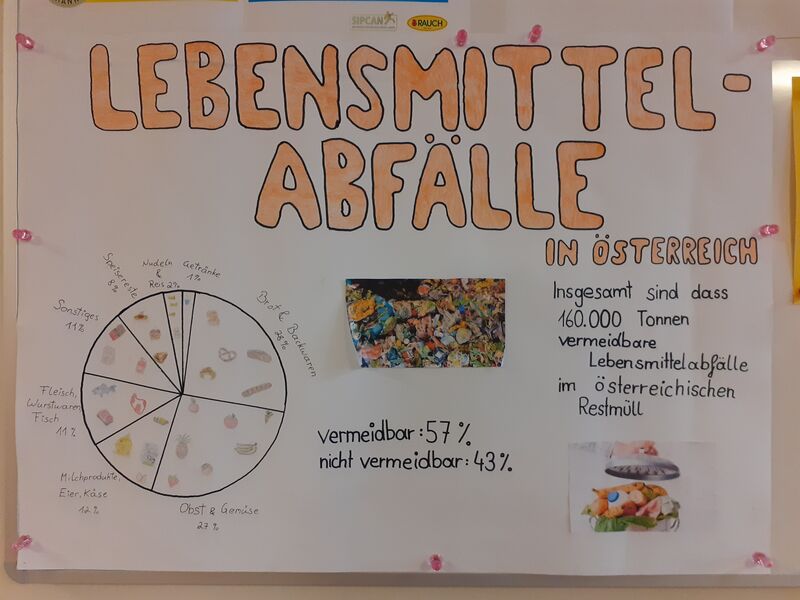 SIPCAN
RAUCH
LEBENSMITTEL-
ABFÄLLE
IN ÖSTERREICH
Nudeln
&
Reis 2%
Getränke
1%
Speisereste
8%
Brot & Backwaren
28%
Sonstiges
11%
Fleisch,
Wurstwaren
Fisch
11%
Milchprodukte,
Eier, Käse
12%
Obst & Gemüse
27%
vermeidbar: 57%
nicht vermeidbar: 43%
Insgesamt sind dass
160.000 Tonnen
vermeidbare
Lebensmittelabfälle
im österreichischen
Restmüll